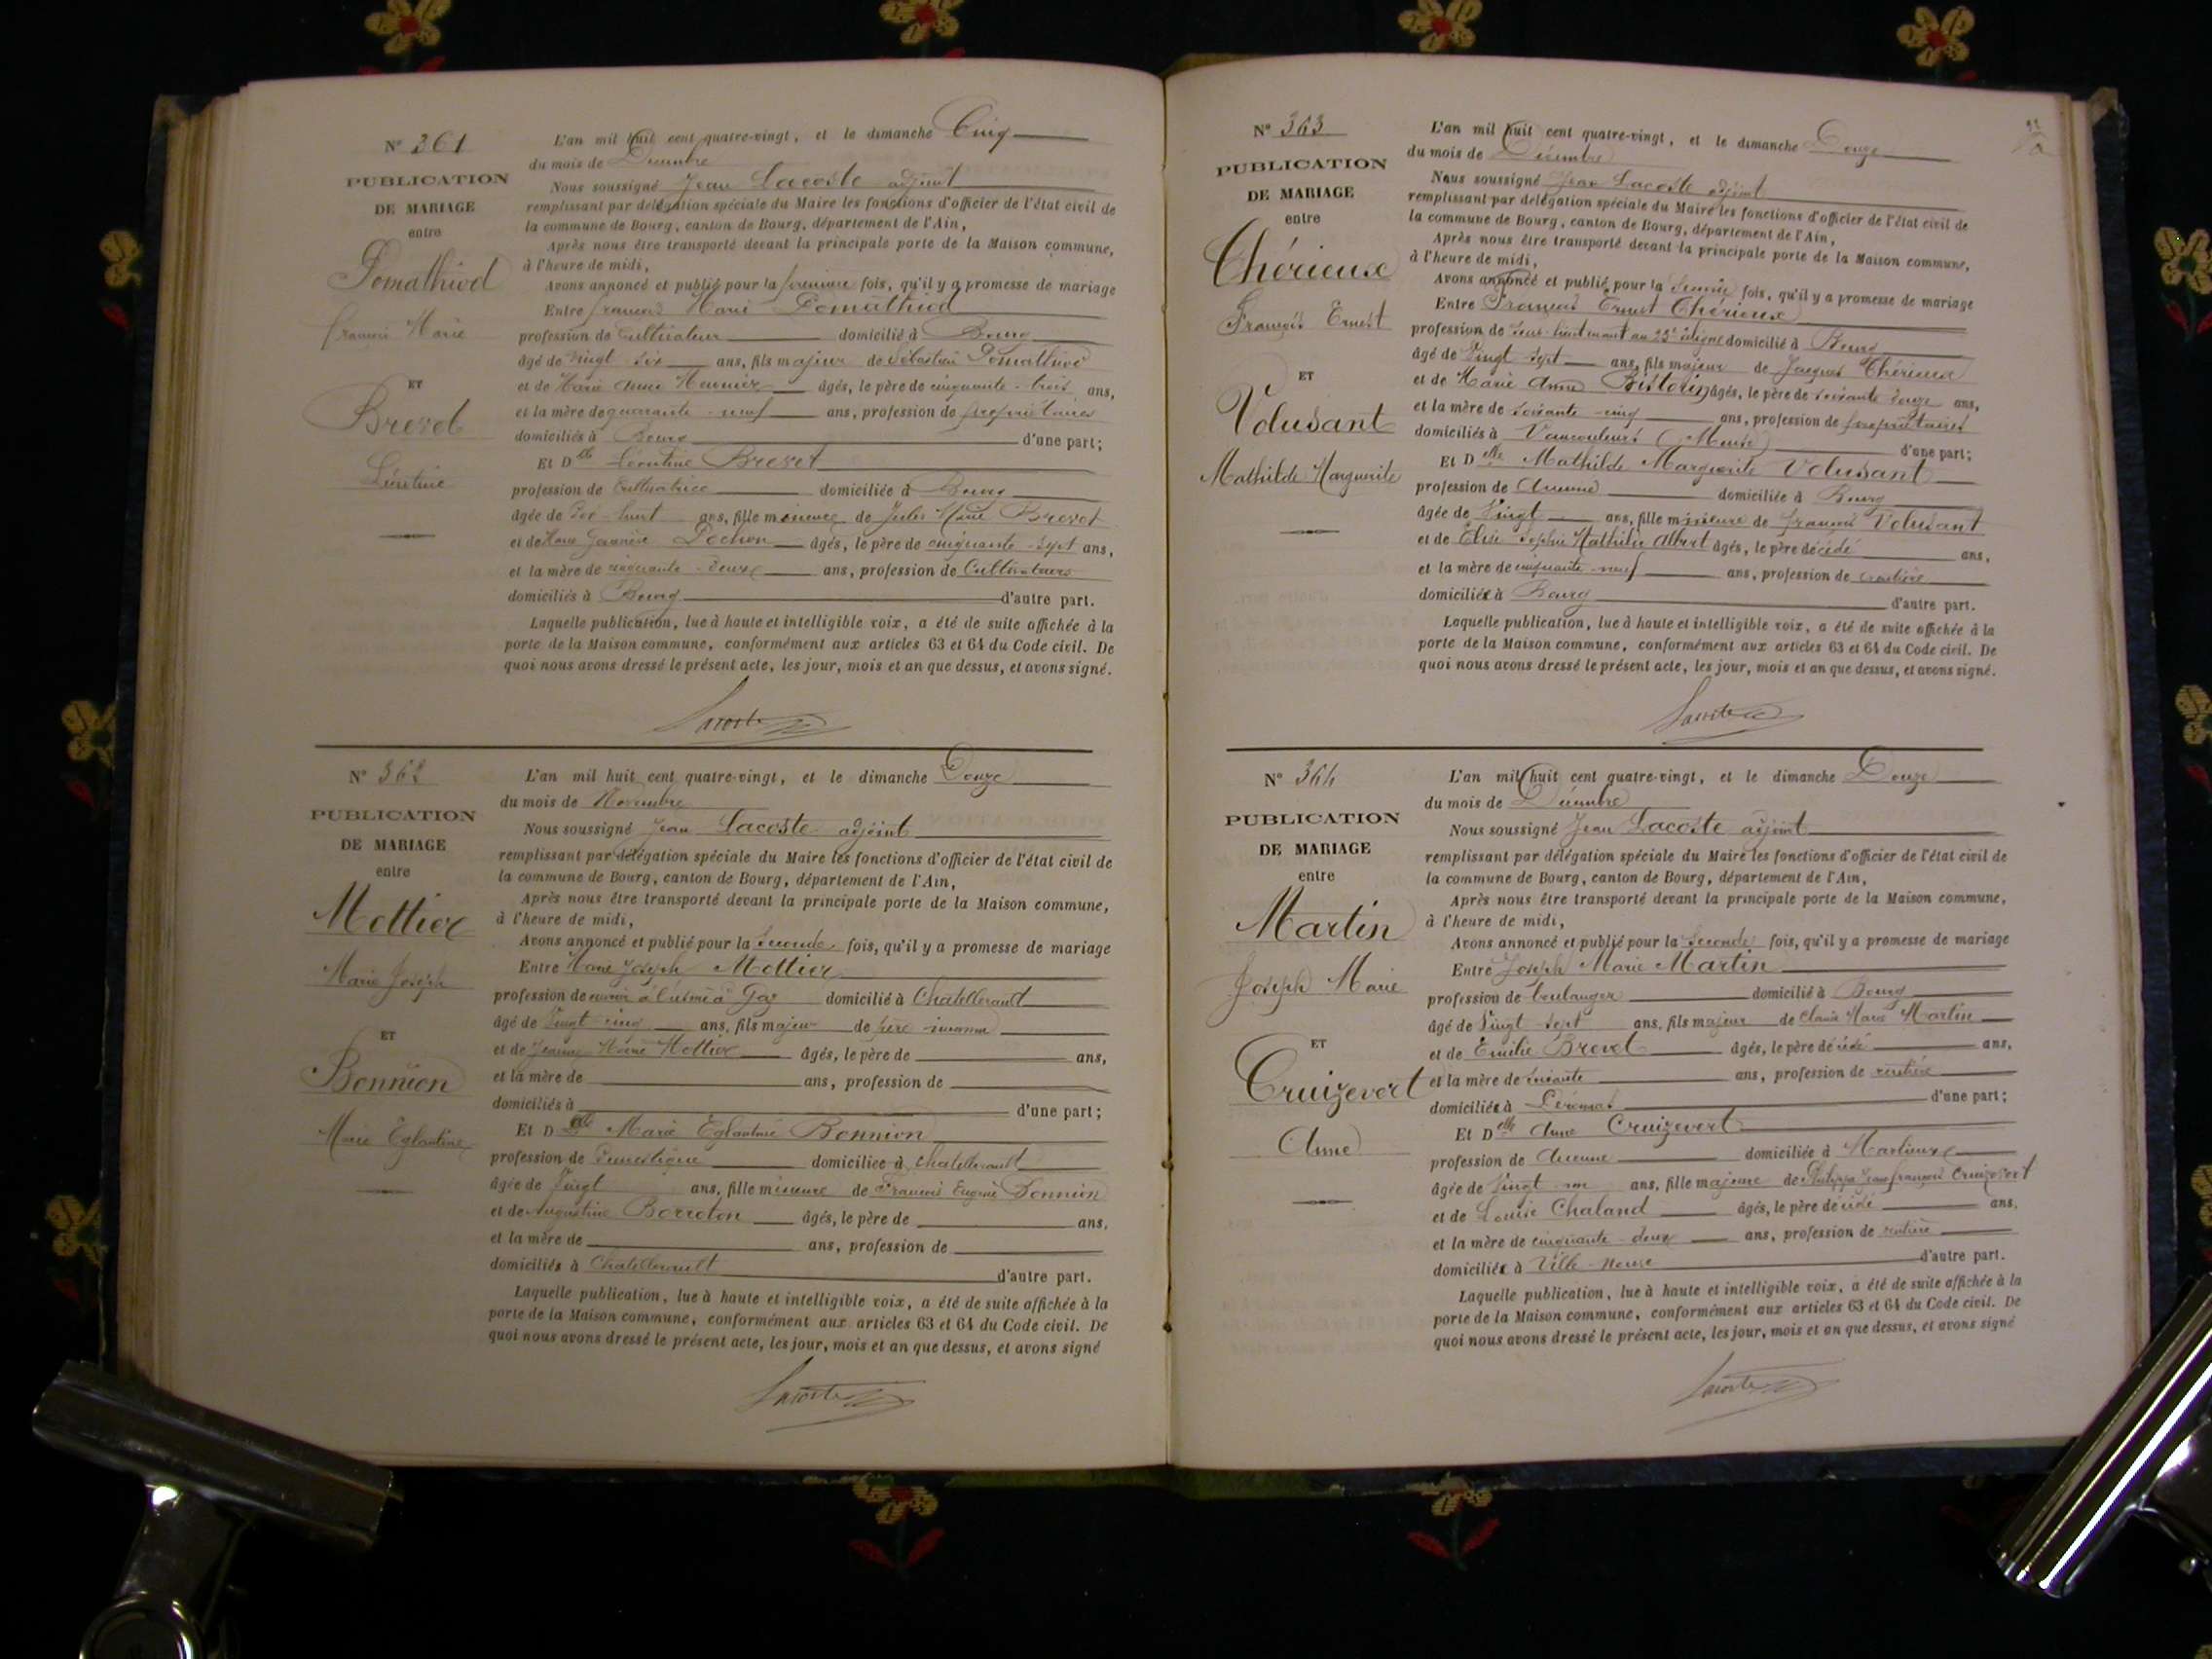 N° 361
PUBLICATION
DE MARIAGE
entre
Pomathiod
François Marie
ET
Brevet
Léontine
L'an mil huit cent quatre-vingt, et le dimanche Cinq
du mois de Décembre
Nous soussigné Jean Lacoste adjoint
remplissant par délégation spéciale du Maire les fonctions d'officier de l'état civil de
la commune de Bourg, canton de Bourg, département de l'Ain,
Après nous être transporté devant la principale porte de la Maison commune,
à l'heure de midi,
Avons annoncé et publié pour la première fois, qu'il y a promesse de mariage
Entre François Marie Pomathiod
profession de Cultivateur domicilié à Bourg
âgé de vingt six ans, fils majeur de Sébastien Pomathiod
et de Marie Anne Meunier âgés, le père de cinquante-trois ans,
et la mère de quarante-neuf ans, profession de propriétaires
domiciliés à Bourg d'une part;
Et Dlle Léontine Brevet
profession de Cultivatrice domiciliée à Bourg
âgée de Dix-huit ans, fille mineure de Jules Marie Brevet
et de Marie Pochon âgés, le père de cinquante-sept ans,
et la mère de cinquante-deux ans, profession de Cultivateurs
domiciliés à Bourg d'autre part.
Laquelle publication, lue à haute et intelligible voix, a été de suite affichée à la
porte de la Maison commune, conformément aux articles 63 et 64 du Code civil. De
quoi nous avons dressé le présent acte, les jour, mois et an que dessus, et avons signé.
Lacoste
N° 362
PUBLICATION
DE MARIAGE
entre
Mottier
Marie Joseph
ET
Bonnion
Marie Eglantine
L'an mil huit cent quatre-vingt, et le dimanche Douze
du mois de Novembre
Nous soussigné Jean Lacoste adjoint
remplissant par délégation spéciale du Maire les fonctions d'officier de l'état civil de
la commune de Bourg, canton de Bourg, département de l'Ain,
Après nous être transporté devant la principale porte de la Maison commune,
à l'heure de midi,
Avons annoncé et publié pour la Seconde fois, qu'il y a promesse de mariage
Entre Marie Joseph Mottier
profession de à l'usine à Gaz domicilié à Chatellerault
âgé de Vingt-cinq ans, fils majeur de père inconnu
et de Jeanne Marie Mottier âgés, le père de ans,
et la mère de ans, profession de
domiciliés à d'une part;
Et Dlle Marie Eglantine Bonnion
profession de Domestique domiciliée à Chatellerault
âgée de Vingt ans, fille mineure de François Eugène Bonnion
et de Augustine Borroton âgés, le père de ans,
et la mère de ans, profession de
domiciliés à Chatellerault d'autre part.
Laquelle publication, lue à haute et intelligible voix, a été de suite affichée à la
porte de la Maison commune, conformément aux articles 63 et 64 du Code civil. De
quoi nous avons dressé le présent acte, les jour, mois et an que dessus, et avons signé
Lacoste
N° 363
PUBLICATION
DE MARIAGE
entre
Chérieux
François Ernest
ET
Volusant
Mathilde Marguerite
L'an mil huit cent quatre-vingt, et le dimanche Douze
du mois de Décembre
Nous soussigné Jean Lacoste adjoint
remplissant par délégation spéciale du Maire les fonctions d'officier de l'état civil de
la commune de Bourg, canton de Bourg, département de l'Ain,
Après nous être transporté devant la principale porte de la Maison commune,
à l'heure de midi,
Avons annoncé et publié pour la fois, qu'il y a promesse de mariage
Entre François Ernest Chérieux
profession de Sous-lieutenant au 23e de ligne domicilié à Bourg
âgé de Vingt-sept ans, fils majeur de Jacques Chérieux
et de Marie Anne Bistorin âgés, le père de soixante douze ans,
et la mère de soixante-cinq ans, profession de propriétaires
domiciliés à Vaucouleurs (Meuse) d'une part;
Et Delle Mathilde Marguerite Volusant
profession de Aucune domiciliée à Bourg
âgée de Vingt ans, fille mineure de François Volusant
et de Elise Sophie Mathilde Albert âgés, le père décédé ans,
et la mère de cinquante-neuf ans, profession de rentière
domiciliée à Bourg d'autre part.
Laquelle publication, lue à haute et intelligible voix, a été de suite affichée à la
porte de la Maison commune, conformément aux articles 63 et 64 du Code civil. De
quoi nous avons dressé le présent acte, les jour, mois et an que dessus, et avons signé.
Lacoste
N° 364
PUBLICATION
DE MARIAGE
entre
Martin
Joseph Marie
ET
Cruizevert
Anne
L'an mil huit cent quatre-vingt, et le dimanche Douze
du mois de Décembre
Nous soussigné Jean Lacoste adjoint
remplissant par délégation spéciale du Maire les fonctions d'officier de l'état civil de
la commune de Bourg, canton de Bourg, département de l'Ain,
Après nous être transporté devant la principale porte de la Maison commune,
à l'heure de midi,
Avons annoncé et publié pour la Seconde fois, qu'il y a promesse de mariage
Entre Joseph Marie Martin
profession de boulanger domicilié à Bourg
âgé de Vingt-sept ans, fils majeur de Claude Marie Martin
et de Emilie Brevet âgés, le père décédé ans,
et la mère de soixante ans, profession de rentière
domiciliée à Péronnas d'une part;
Et Delle Anne Cruizevert
profession de Aucune domiciliée à Marlieux
âgée de Vingt-un ans, fille majeure de Philippe Jean François Cruizevert
et de Louise Chaland âgés, le père décédé ans,
et la mère de cinquante-deux ans, profession de rentière
domiciliée à Ville-neuve d'autre part.
Laquelle publication, lue à haute et intelligible voix, a été de suite affichée à la
porte de la Maison commune, conformément aux articles 63 et 64 du Code civil. De
quoi nous avons dressé le présent acte, les jour, mois et an que dessus, et avons signé
Lacoste